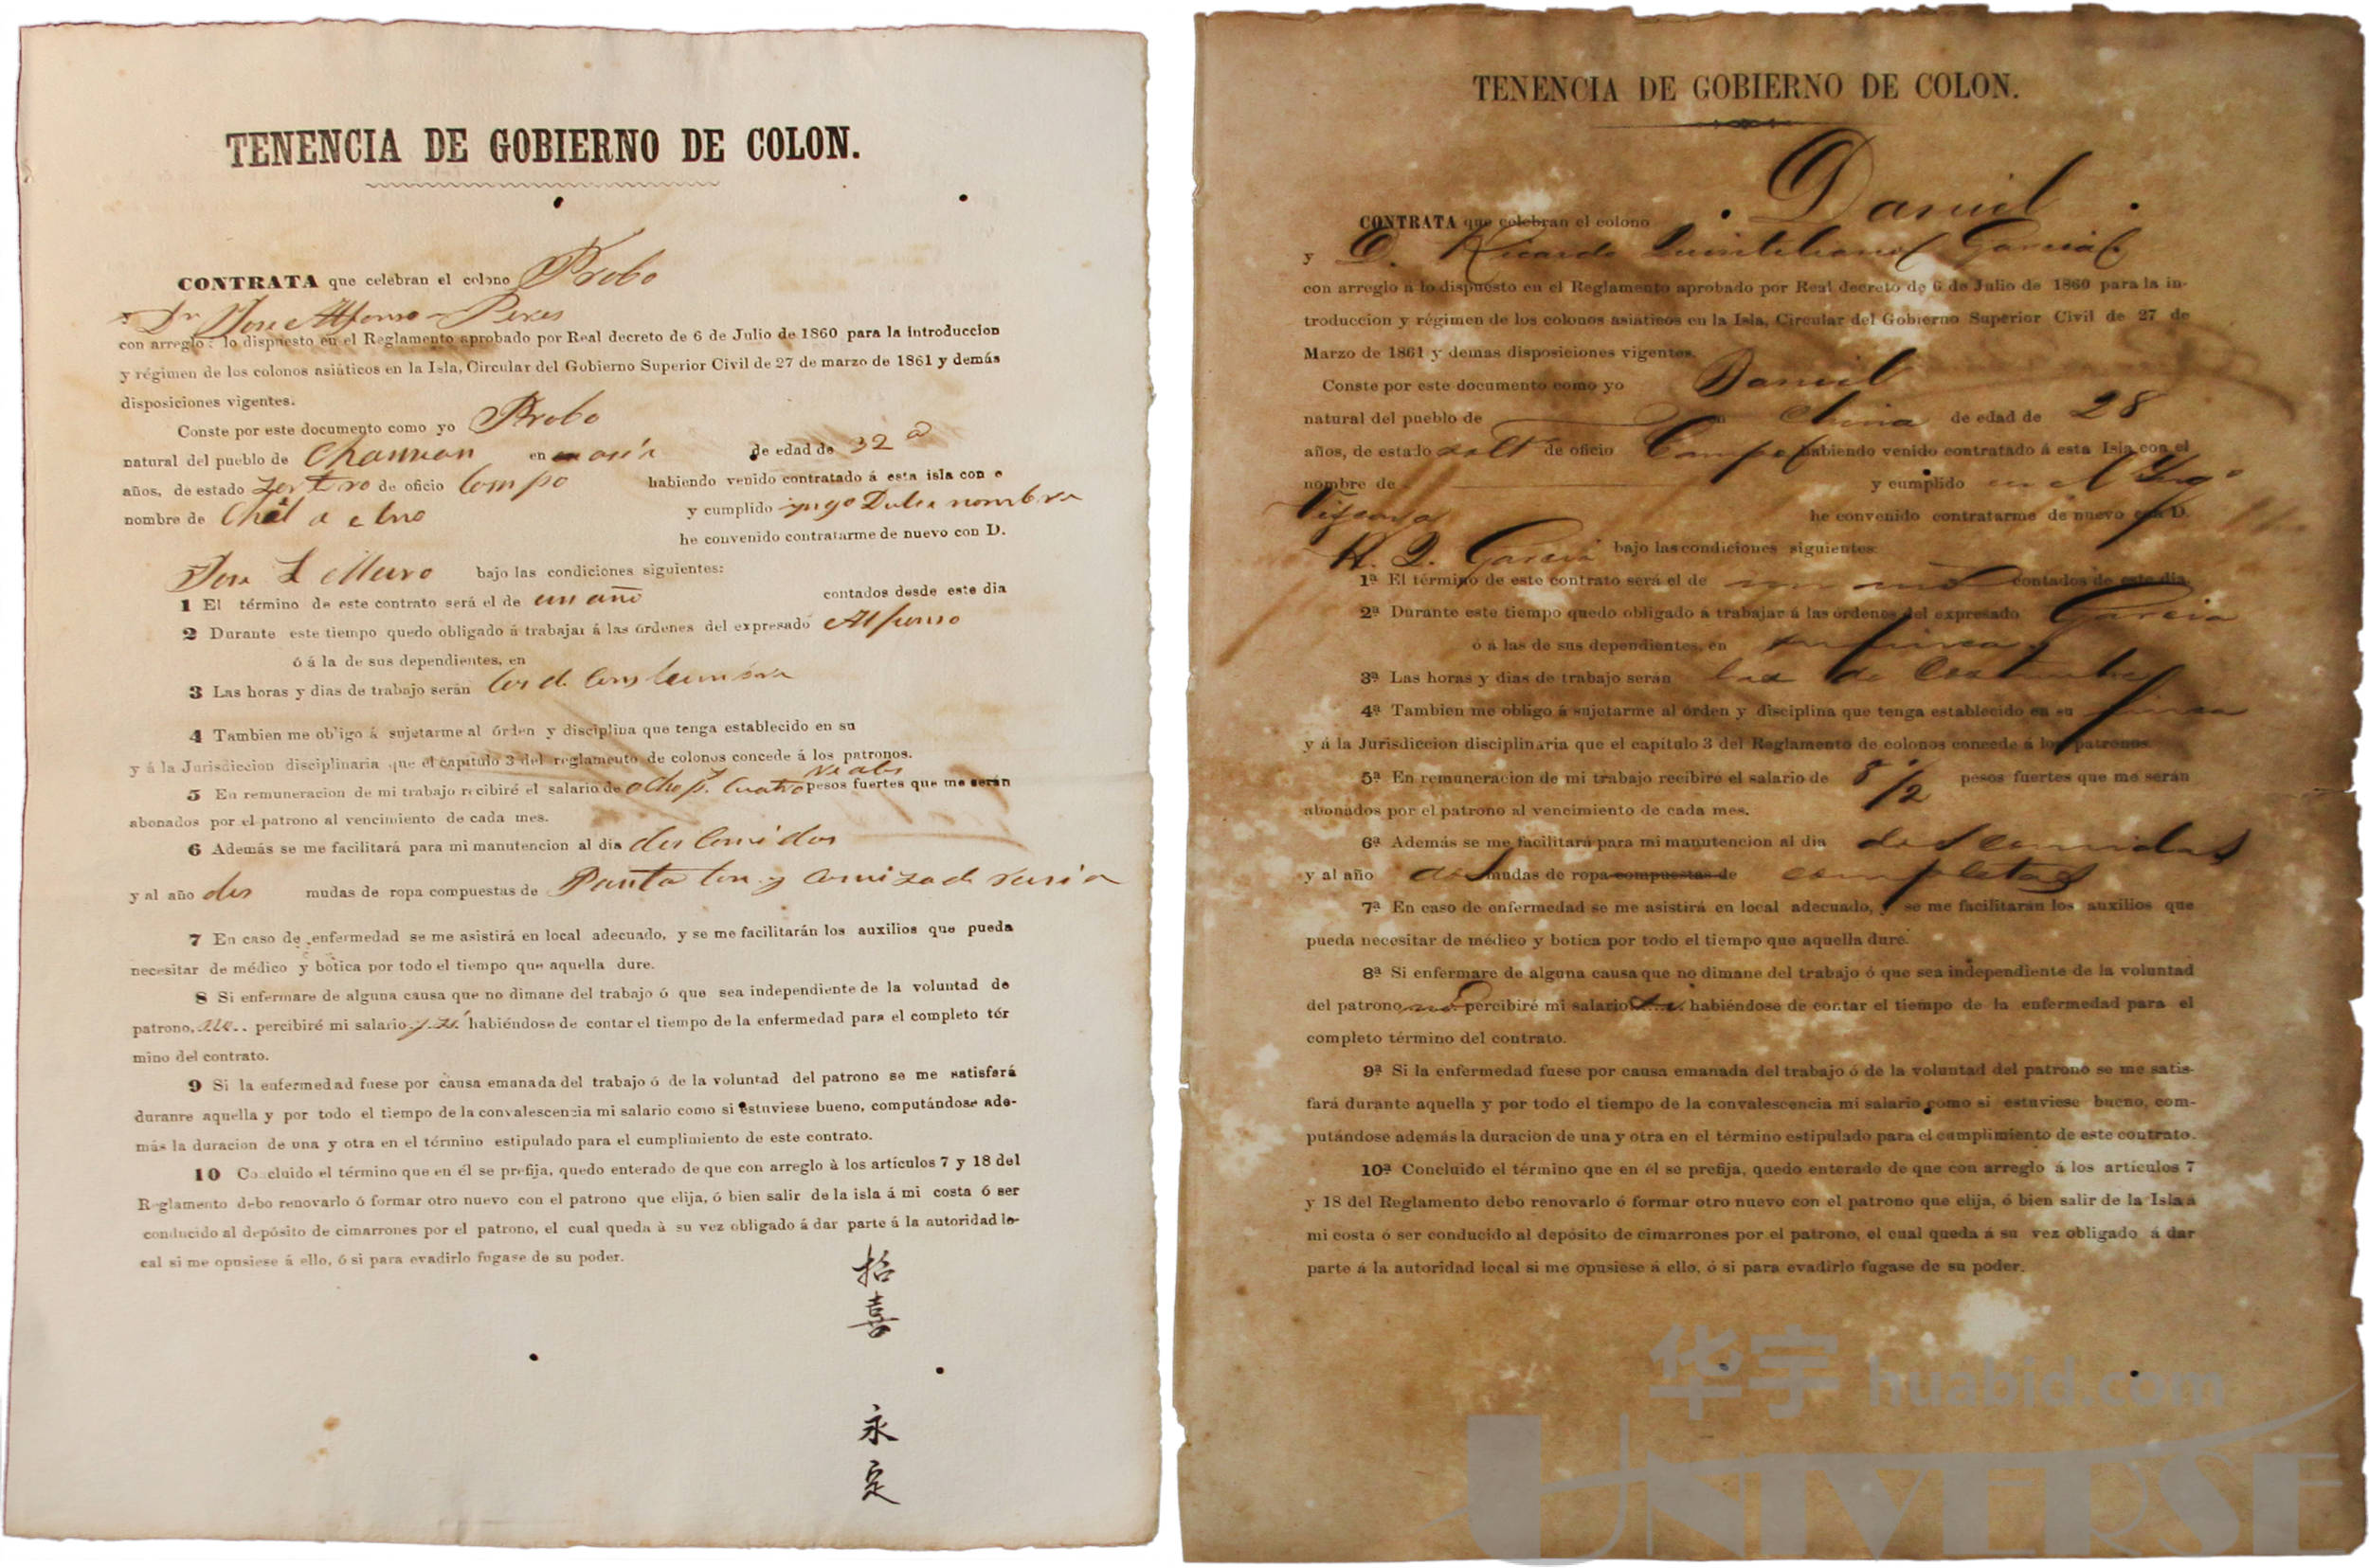 TENENCIA DE GOBIERNO DE COLON.
CONTRATA que celebran el colono Probo
y Dn Jose Alfonso Peres
con arreglo á lo dispuesto en el Reglamento aprobado por Real decreto de 6 de Julio de 1860 para la introduccion
y régimen de los colonos asiáticos en la Isla, Circular del Gobierno Superior Civil de 27 de marzo de 1861 y demás
disposiciones vigentes.
Conste por este documento como yo Probo
natural del pueblo de en asia de edad de 32 a
años, de estado de oficio Campo habiendo venido contratado á esta isla con e
nombre de y cumplido yngo Dulce nombre
he convenido contratarme de nuevo con D.
bajo las condiciones siguientes:
1 El término de este contrato será el de un año contados desde este dia
2 Durante este tiempo quedo obligado á trabajar á las órdenes del expresado Alfonso
ó á la de sus dependientes, en
3 Las horas y dias de trabajo serán los de Constumbre
4 Tambien me obligo á sujetarme al órden y disciplina que tenga establecido en su
y á la Jurisdiccion disciplinaria que el capitulo 3 del reglamento de colonos concede á los patronos.
5 En remuneracion de mi trabajo recibiré el salario de ocho p. Cuatro reales pesos fuertes que me serán
abonados por el patrono al vencimiento de cada mes.
6 Además se me facilitará para mi manutencion al dia dos Comidas
y al año dos mudas de ropa compuestas de Pantalon y Camisa de rusia
7 En caso de enfermedad se me asistirá en local adecuado, y se me facilitarán los auxilios que pueda
necesitar de médico y botica por todo el tiempo que aquella dure.
8 Si enfermare de alguna causa que no dimane del trabajo ó que sea independiente de la voluntad de
patrono, no percibiré mi salario y si habiéndose de contar el tiempo de la enfermedad para el completo tér
mino del contrato.
9 Si la enfermedad fuese por causa emanada del trabajo ó de la voluntad del patrono se me satisfará
duranre aquella y por todo el tiempo de la convalescencia mi salario como si estuviese bueno, computándose ade-
más la duracion de una y otra en el término estipulado para el cumplimiento de este contrato.
10 Concluido el término que en él se prefija, quedo enterado de que con arreglo à los artículos 7 y 18 del
Reglamento debo renovarlo ó formar otro nuevo con el patrono que elija, ó bien salir de la isla á mi costa ó ser
conducido al depósito de cimarrones por el patrono, el cual queda à su vez obligado á dar parte á la autoridad lo-
cal si me opusiese á ello, ó si para evadirlo fugase de su poder.
拾喜
永定
TENENCIA DE GOBIERNO DE COLON.
CONTRATA que celebran el colono Daniel
y D. Ricardo Quintiliano Garcia
con arreglo á lo dispuesto en el Reglamento aprobado por Real decreto de 6 de Julio de 1860 para la in-
troduccion y régimen de los colonos asiaticos en la Isla, Circular del Gobierno Superior Civil de 27 de
Marzo de 1861 y demas disposiciones vigentes.
Conste por este documento como yo Daniel
natural del pueblo de en China de edad de 28
años, de estado solt de oficio Campo habiendo venido contratado á esta Isla con el
nombre de y cumplido en el Yngo
Viscaya he convenido contratarme de nuevo con D.
R. Q. Garcia bajo las condiciones siguientes:
1ª El término de este contrato será el de un año contados de este dia
2ª Durante este tiempo quedo obligado á trabajar á las órdenes del expresado Garcia
ó á las de sus dependientes, en su finca
3ª Las horas y dias de trabajo serán las de Costumbre
4ª Tambien me obligo á sujetarme al órden y disciplina que tenga establecido en su finca
y á la Jurisdiccion disciplinaria que el capitulo 3 del Reglamento de colonos concede á los patronos.
5ª En remuneracion de mi trabajo recibiré el salario de 8 1/2 pesos fuertes que me serán
abonados por el patrono al vencimiento de cada mes.
6ª Además se me facilitará para mi manutencion al dia dos comidas
y al año dos mudas de ropa compuestas de completas
7ª En caso de enfermedad se me asistirá en local adecuado, y se me facilitarán los auxilios que
pueda necesitar de médico y botica por todo el tiempo que aquella dure.
8ª Si enfermare de alguna causa que no dimane del trabajo ó que sea independiente de la voluntad
del patrono no percibiré mi salario habiéndose de contar el tiempo de la enfermedad para el
completo término del contrato.
9ª Si la enfermedad fuese por causa emanada del trabajo ó de la voluntad del patrono se me satis-
fará durante aquella y por todo el tiempo de la convalescencia mi salario como si estuviese bueno, com-
putándose además la duracion de una y otra en el término estipulado para el cumplimiento de este contrato.
10ª Concluido el término que en él se prefija, quedo enterado de que con arreglo á los artículos 7
y 18 del Reglamento debo renovarlo ó formar otro nuevo con el patrono que elija, ó bien salir de la Isla á
mi costa ó ser conducido al depósito de cimarrones por el patrono, el cual queda á su vez obligado á dar
parte á la autoridad local si me opusiese á ello, ó si para evadirlo fugase de su poder.
华宇 huabid.com
UNIVERSE